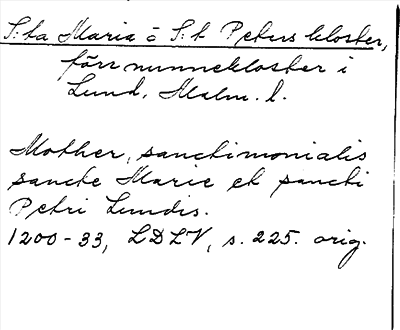 S:ta Maria o S:t Peters kloster,
förr nunnekloster i
Lund, Malm. l.
Mother, sanctimonialis
sancte Marie et sancti
Petri Lundis.
1200-33, LDLV, s. 225. orig.